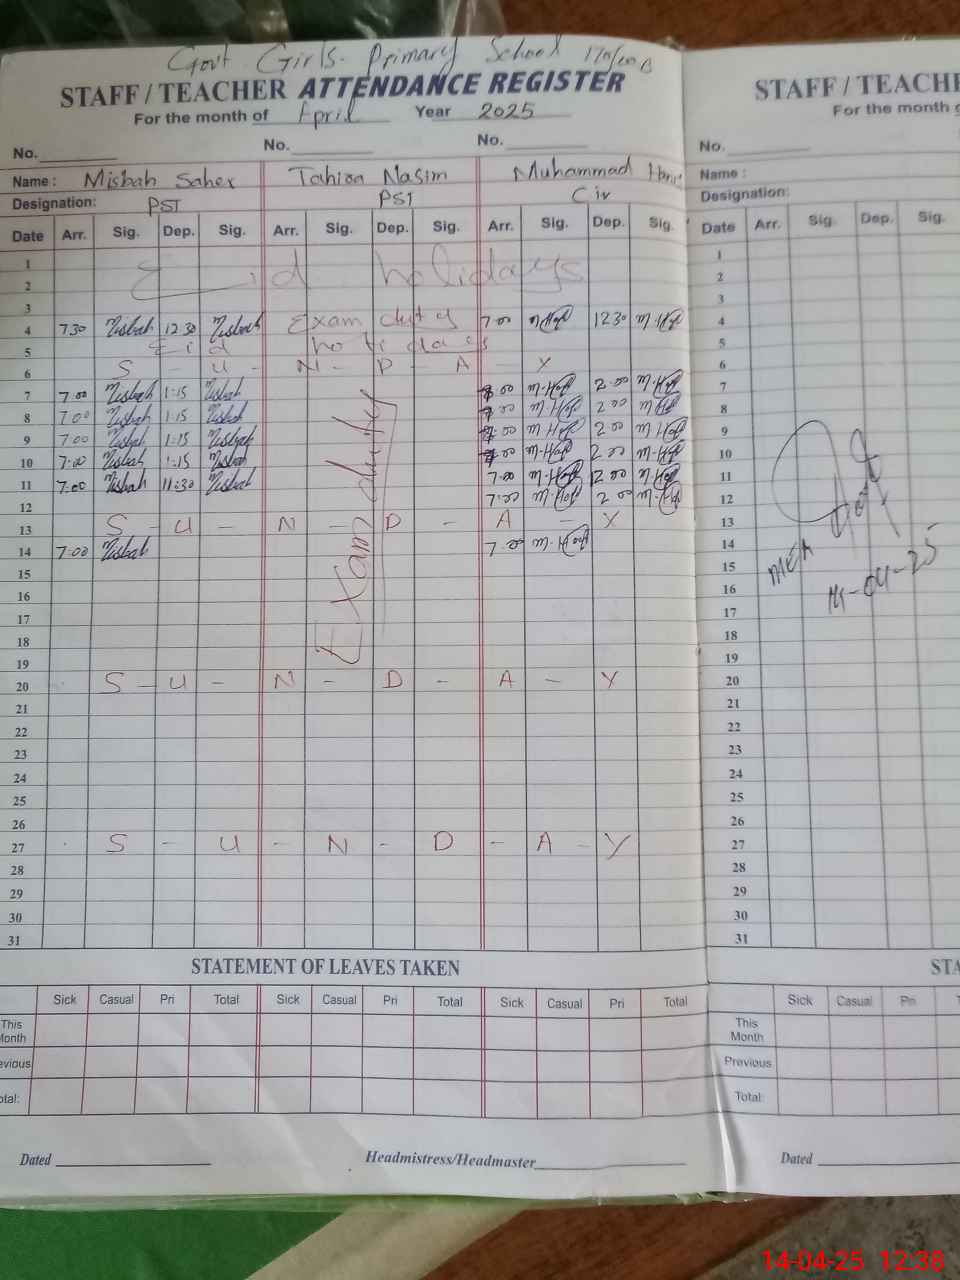 Govt Girls. Primary School 170/10B
STAFF / TEACHER ATTENDANCE REGISTER
For the month of April Year 2025
No. No. No.
Name : Misbah Saher Tahira Nasim Muhammad
Designation: PST PST Civ
Date Arr. Sig. Dep. Sig. Arr. Sig. Dep. Sig. Arr. Sig. Dep. Sig.
1
2 Eid holidays
3
4 7.30 Misbah 12 30 Misbah Exam duty 12 30
5 Eid holidays
6 S - U - N - D - A - Y
7 7.00 Misbah 1:15 Misbah 2 00
8 7.00 Misbah 1:15 Misbah 2 00
9 7.00 Misbah 1:15 Misbah 2 00
10 7.00 Misbah 1:15 Misbah
11 7:00 Misbah 11:30 Misbah
12
13 S - U - N - D - A - Y
14 7:00 Misbah
Exam duty
15
16
17
18
19
20 S - U - N - D - A - Y
21
22
23
24
25
26
27 S - U - N - D - A - Y
28
29
30
31
STATEMENT OF LEAVES TAKEN
Sick Casual Pri Total Sick Casual Pri Total Sick Casual Pri Total
This Month
Previous
Total:
Dated Headmistress/Headmaster
STAFF / TEACHE
For the month
No.
Name :
Designation:
Date Arr. Sig. Dep. Sig.
1
2
3
4
5
6
7
8
9
10
11
12
13
14
15 MEA
16 14-04-25
17
18
19
20
21
22
23
24
25
26
27
28
29
30
31
STA
Sick Casual Pri
This Month
Previous
Total:
Dated
14-04-25 12:38